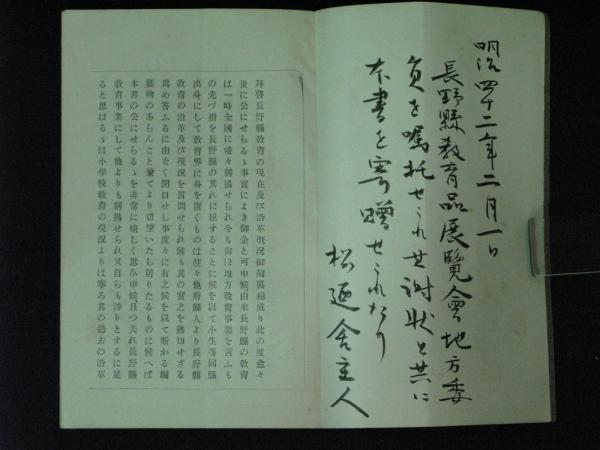 明治四十二年二月一日
長野縣教育品展覽會地方委
員を嘱托せられ其謝状と共に
本書を寄贈せられたり
松廼舎主人
拜啓長野縣教育の現在及び沿革概況御編纂相成り此の度愈々
世に公にせらるゝ事實によき御企と可申候由來長野縣の教育
は一時全國に嘖々稱揚せられ今も尙ほ地方教育事業を言ふも
の先づ指を長野縣の其れに屈することに候を以て小生等同縣
出身にして教育界に身を置くものは往々他府縣人より長野縣
教育の沿革及び現況を質問せられ候も其の實之を熟知せざる
爲め答ふるに由なく閉口せし事度々に有之候を以て斯かる編
纂物のあらんこと兼てより切望いたし居りたるものに候へば
本書の公にせらるゝを非常に嬉しく思ひ申候且つ夫れ長野縣
教育事業にして他よりも稱揚せられ又自らも誇りとするに足
ると思はるゝは小學校教育の現況よりは寧ろ其の過去の沿革